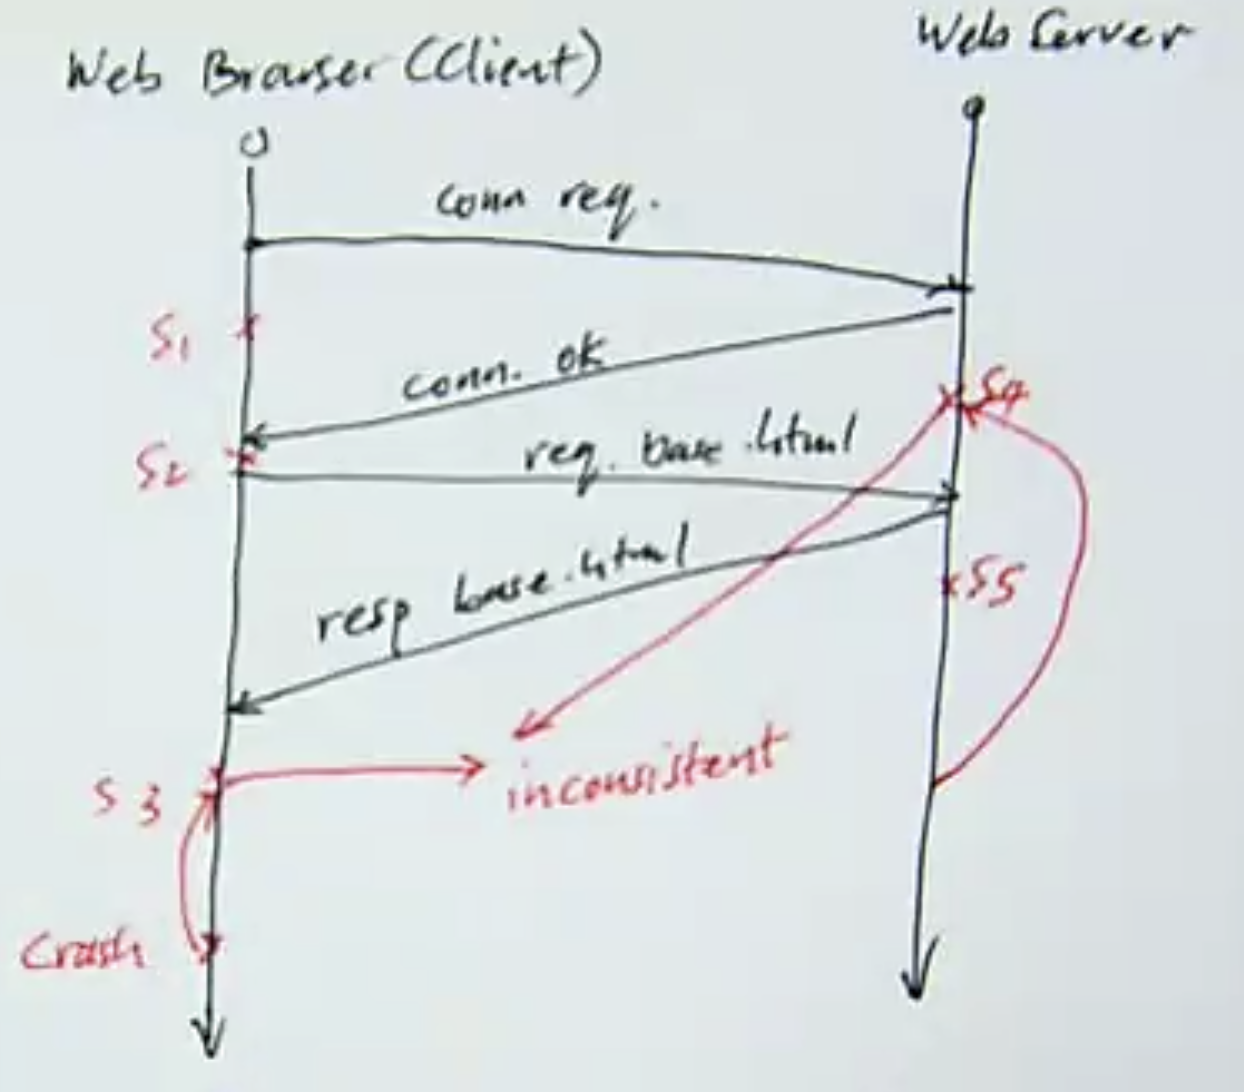 Web Browser (Client)
Web Server
conn req.
S1
conn. ok
S4
S2
req. base.html
resp base.html
S5
S3
inconsistent
Crash